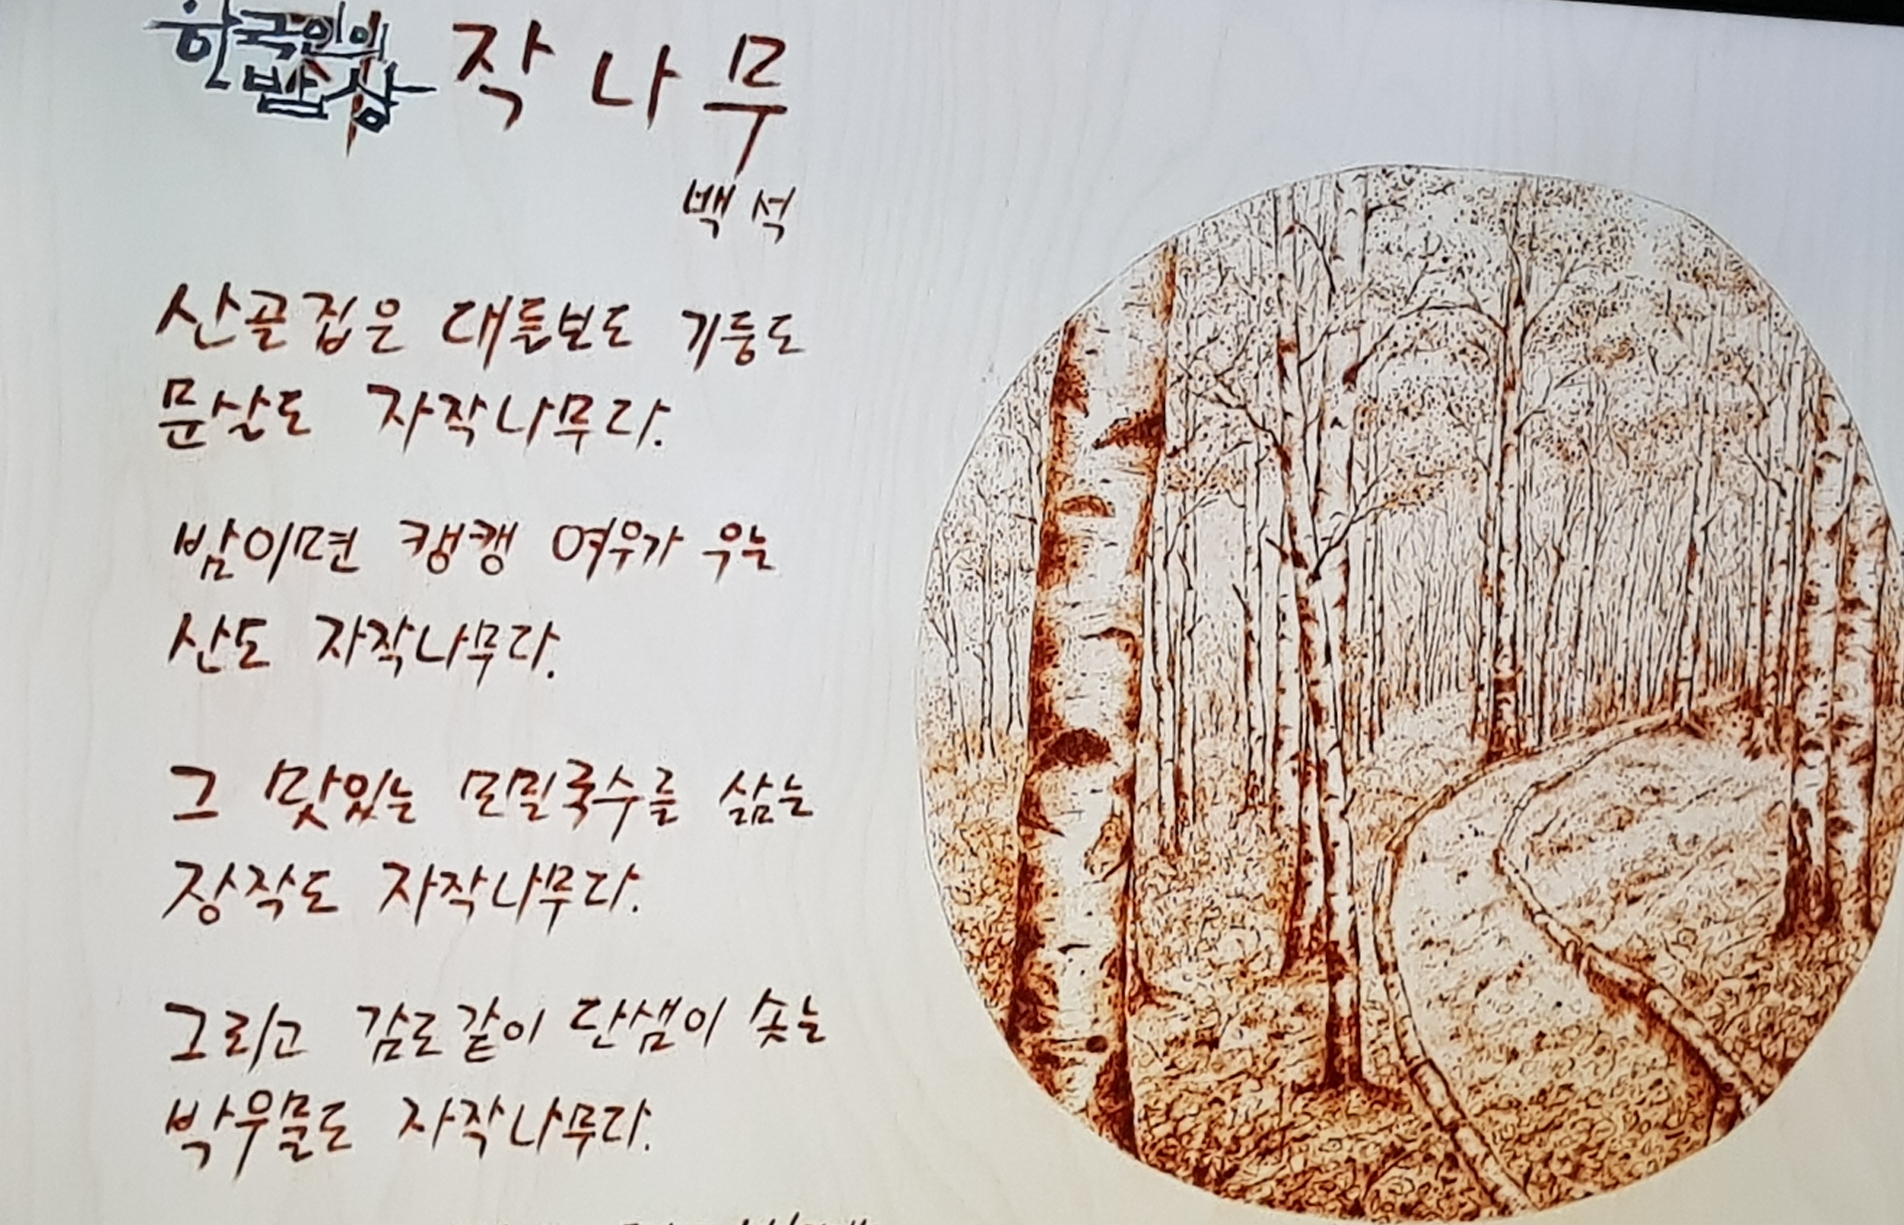 한국인의
밥상
작나무
백석
산골집은 대들보도 기둥도
문살도 자작나무다.
밤이면 캥캥 여우가 우는
산도 자작나무다.
그 맛있는 모밀국수를 삶는
장작도 자작나무다.
그리고 감로같이 단샘이 솟는
박우물도 자작나무다.